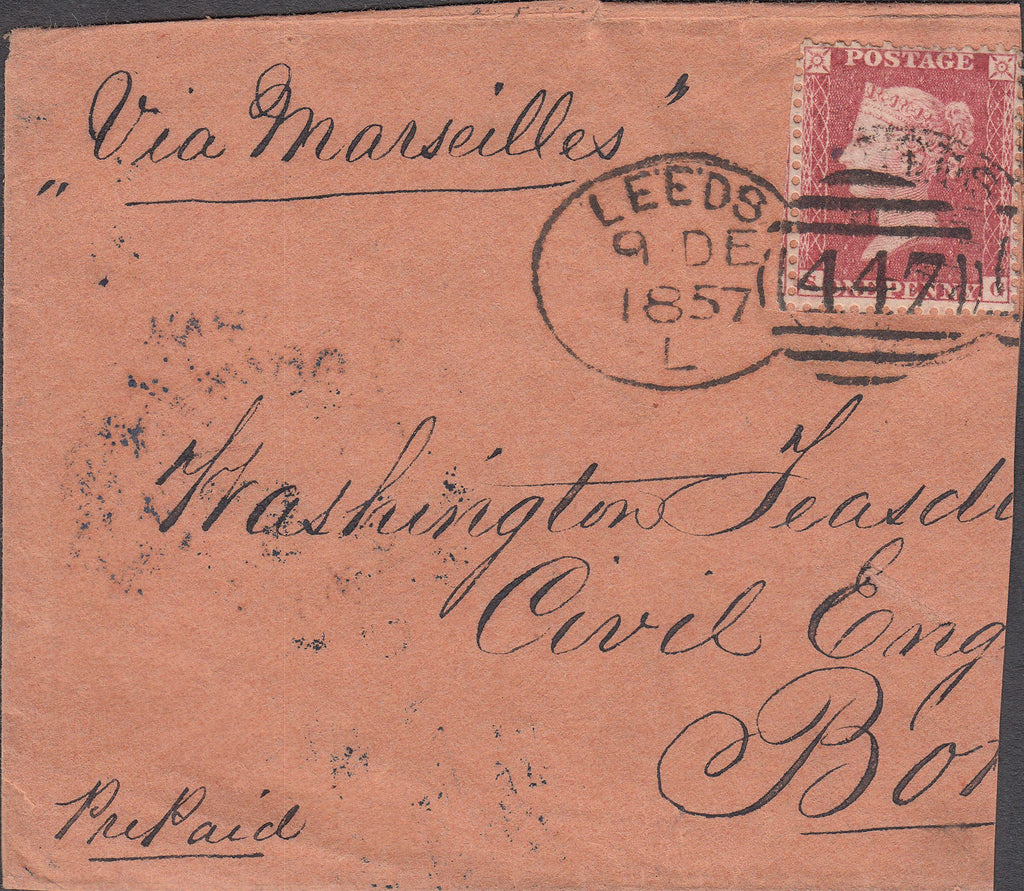 POSTAGE
"Via Marseilles"
LEEDS
9 DE
1857
L
447
ONE PENNY
S G
Washington Teasd
Civil Eng
Bo
PrePaid